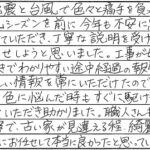 震と台風で色々と痛手を負っ
ムシーズンを前に今年も不安に
ていただき、丁寧な説明を受け
せしようと思いました。工事が
きでわかりやすい途中経過の報
しい情報を常にいただけたので
色に悩んだ時もすぐに駆け
いただき助かりました。職人さん
寧で、古い家が見違える程綺麗
にお任せして本当に良かったと思ってい